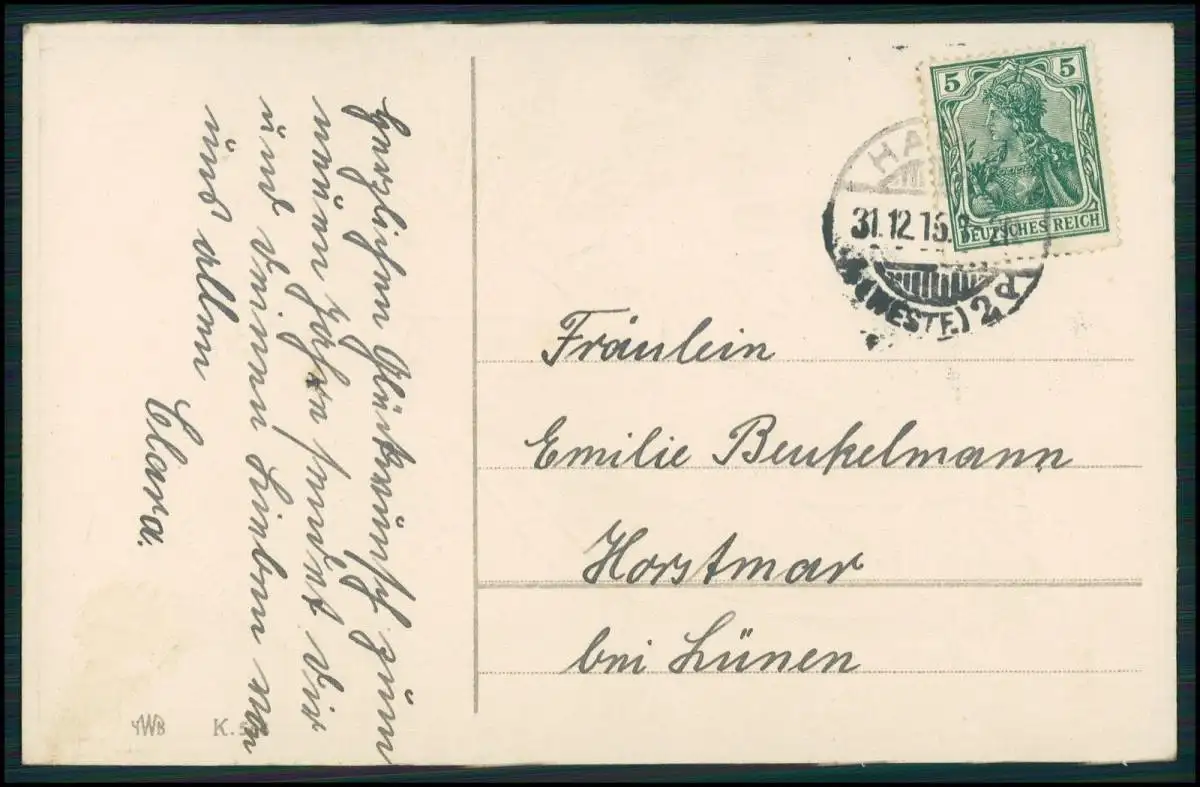 Herzlichen Glückwunsch zum
neuen Jahre sendet dir
und deinen Lieben von
und allen
Clara.
5 5
DEUTSCHES REICH
HA
31.12.15.
(WESTF.) 2
Fräulein
Emilie Beukelmann
Horstmar
bei Lünen
WB K.